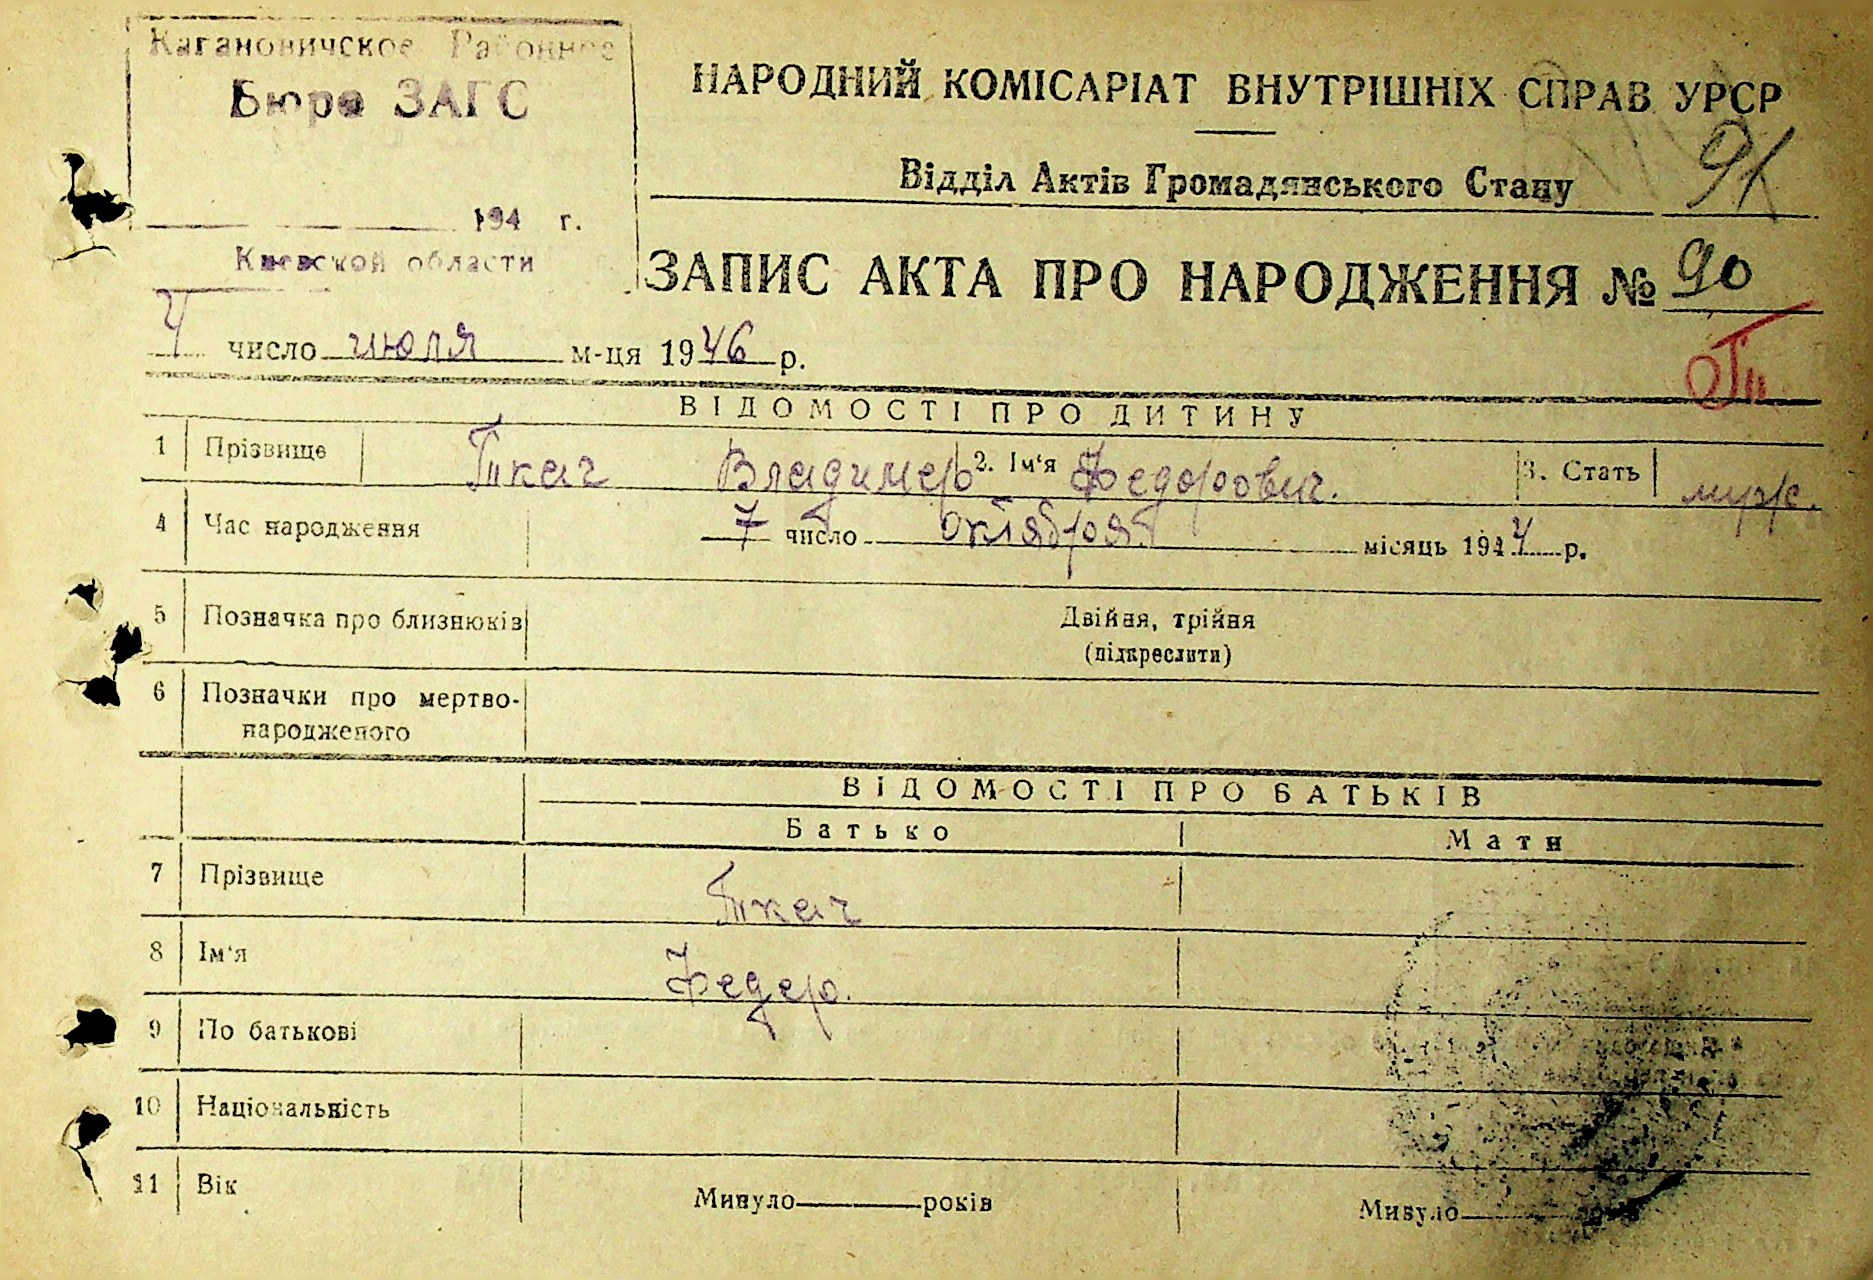 Кагановичское Районное
Бюро ЗАГС
194 г.
Киевской области
НАРОДНИЙ КОМІСАРІАТ ВНУТРІШНІХ СПРАВ УРСР
91
Відділ Актів Громадянського Стану
ЗАПИС АКТА ПРО НАРОДЖЕННЯ № 90
4 число июля м-ця 1946 р.
ВІДОМОСТІ ПРО ДИТИНУ
1 Прізвище Ткач Владимер 2. Ім'я Федорович. 3. Стать муж.
4 Час народження 7 число октября місяць 1944 р.
5 Позначка про близнюків Двійня, трійня
(підкреслити)
6 Позначки про мертво-
народженого
ВІДОМОСТІ ПРО БАТЬКІВ
Батько Мати
7 Прізвище Ткач
8 Ім'я Федер.
9 По батькові
10 Національність
11 Вік Минуло років Минуло